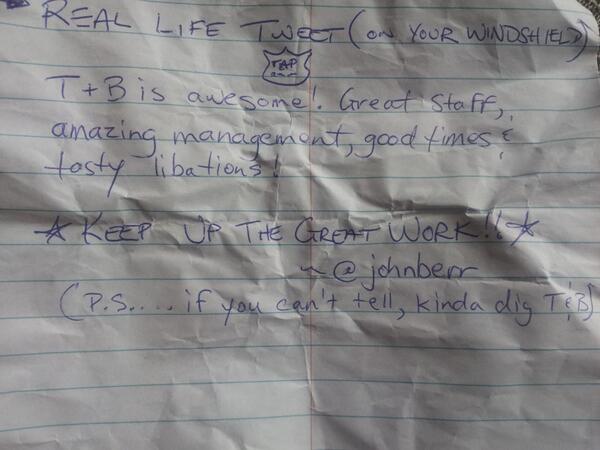 REAL LIFE TWEET (ON YOUR WINDSHIELD)
TAP
T+B is awesome! Great Staff,
amazing management, good times &
tasty libations!
★ KEEP UP THE GREAT WORK!! ★
~ @johnberr
(P.S.... if you can't tell, kinda dig T&B)